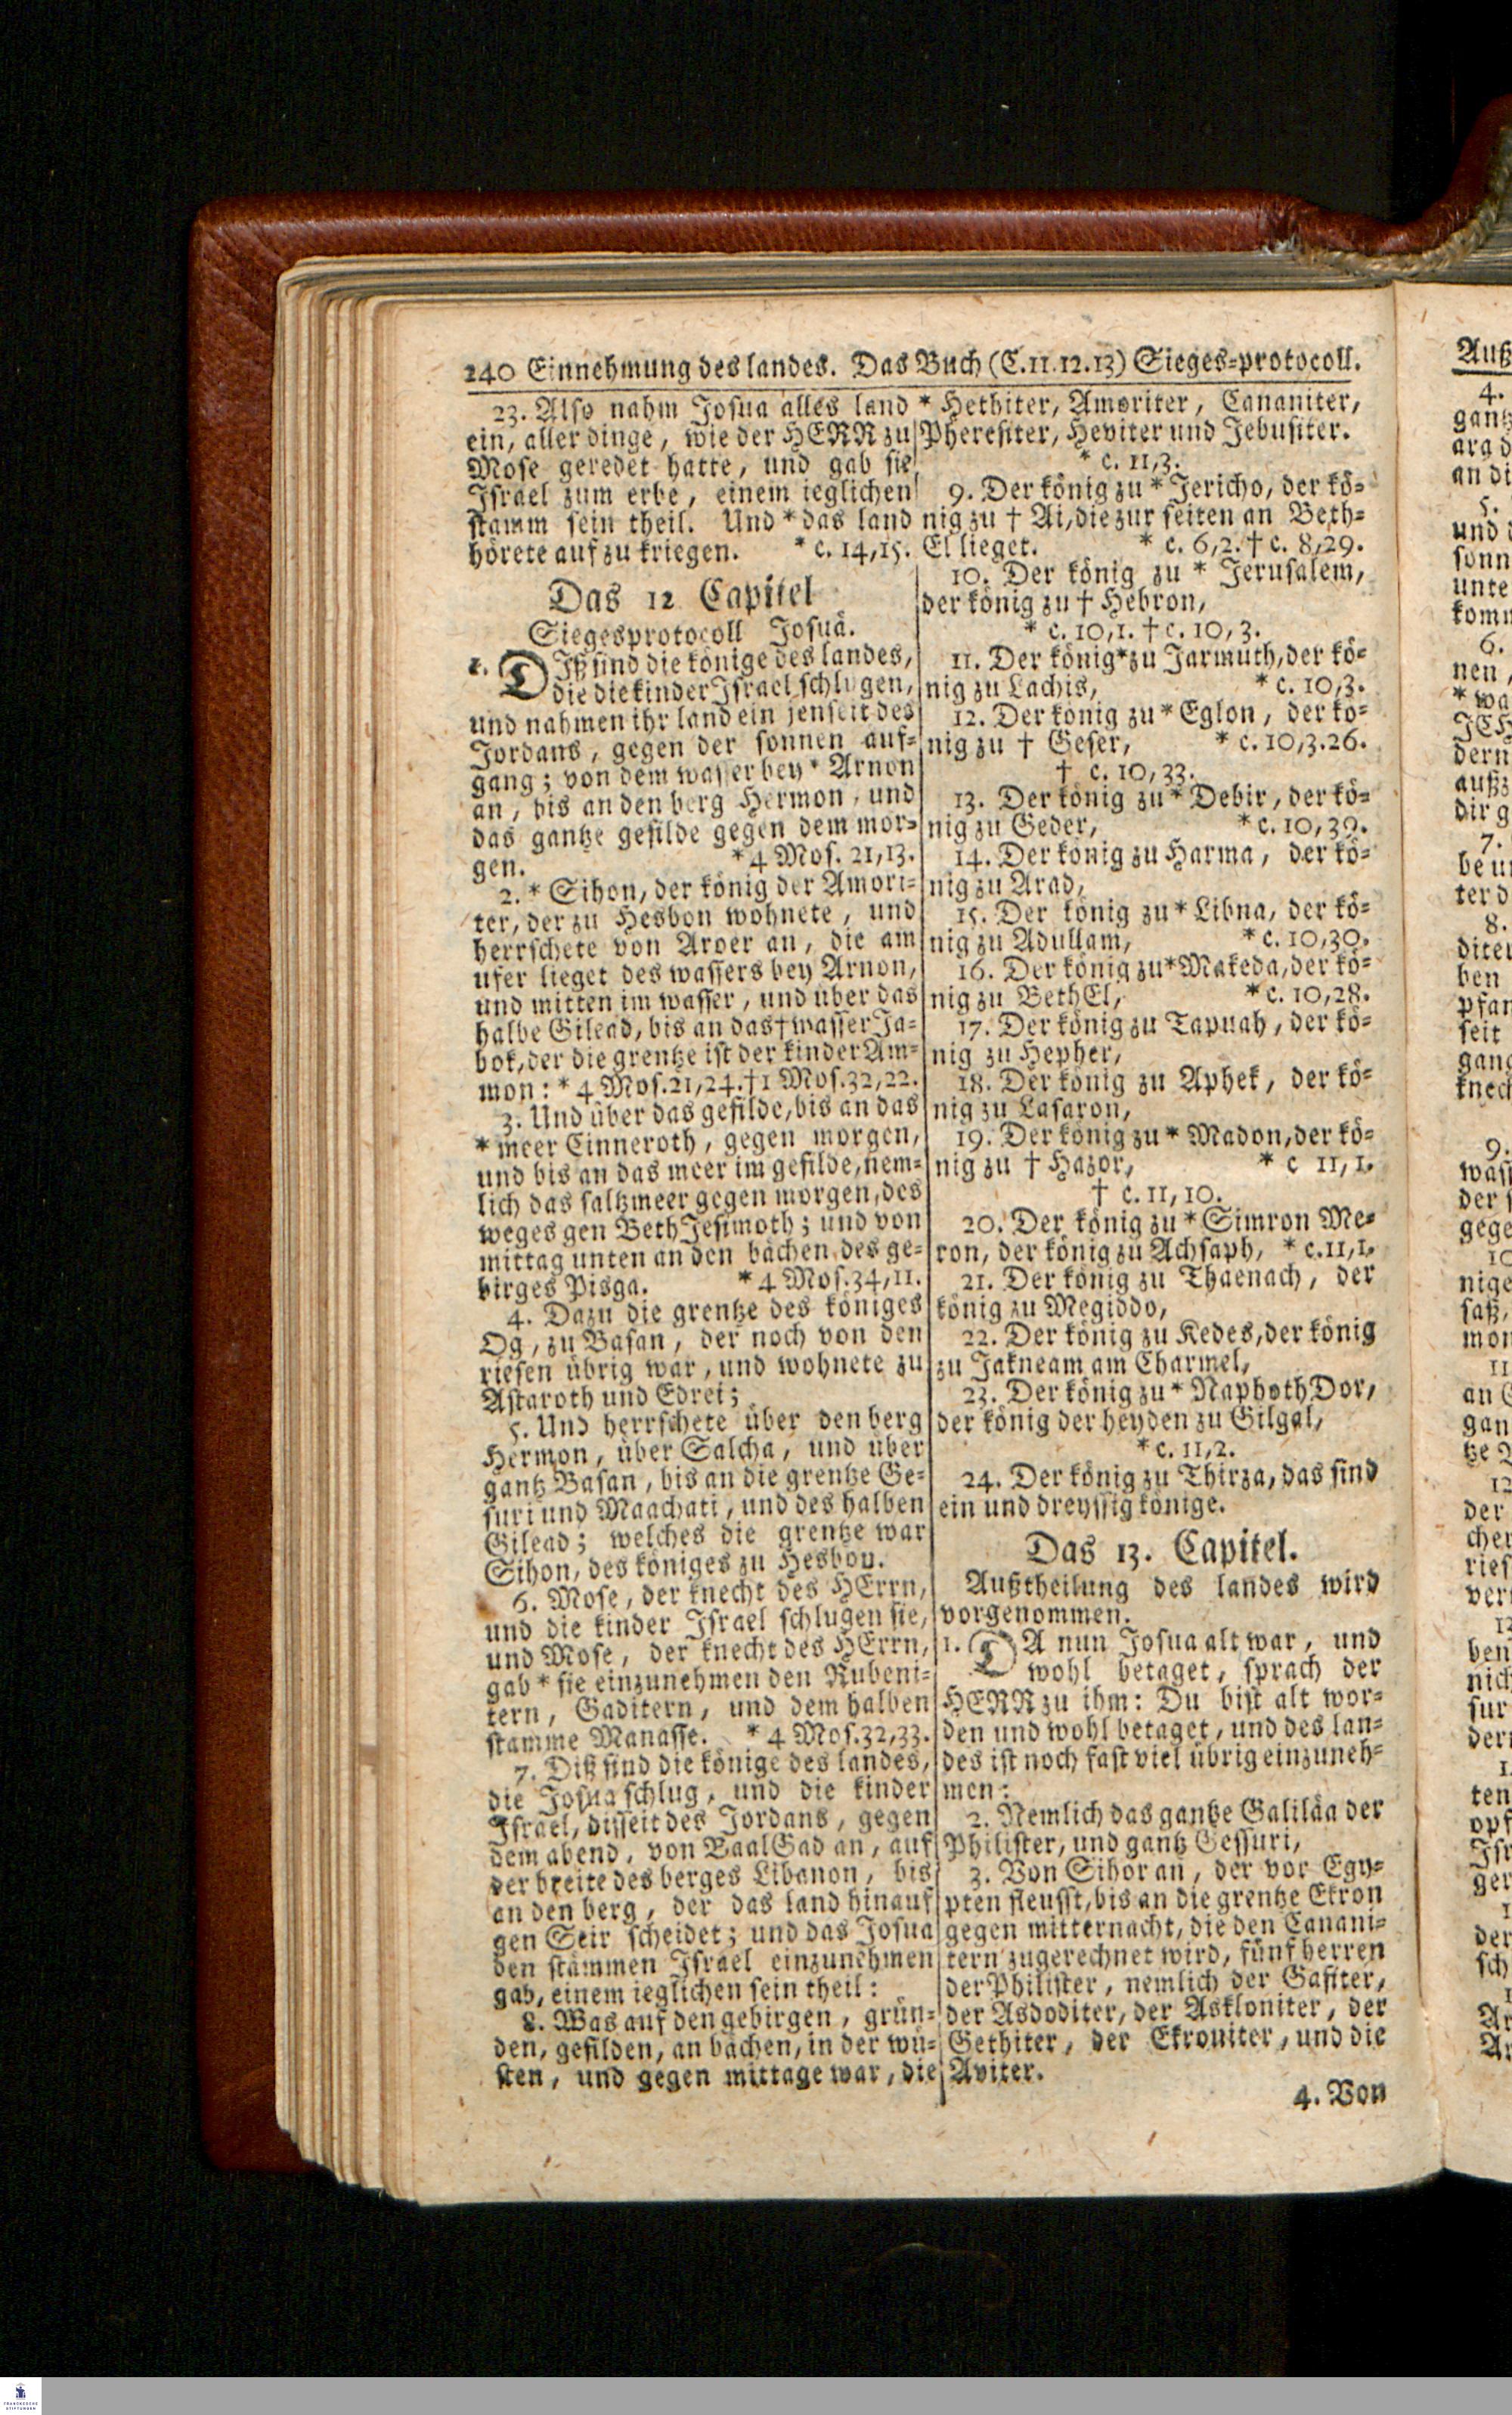 240 Einnehmung des landes. Das Buch (C.11.12.13) Sieges-protocoll.
23. Also nahm Josua alles land
ein, aller dinge, wie der HERR zu
Mose geredet hatte, und gab sie
Israel zum erbe, einem ieglichen
stamm sein theil. Und * das land
hörete auf zu kriegen. * c. 14,15.
Das 12 Capitel
Siegesprotocoll Josuä.
1. DIß sind die könige des landes,
die die kinder Israel schlugen,
und nahmen ihr land ein jenseit des
Jordans, gegen der sonnen auf-
gang; von dem wasser bey * Arnon
an, bis an den berg Hermon, und
das gantze gefilde gegen dem mor-
gen. * 4 Mos. 21,13.
2. * Sihon, der könig der Amori-
ter, der zu Hesbon wohnete, und
herrschete von Aroer an, die am
ufer lieget des wassers bey Arnon,
und mitten im wasser, und über das
halbe Gilead, bis an das † wasser Ja-
bok, der die grentze ist der kinder Am-
mon: * 4 Mos. 21,24. † 1 Mos. 32,22.
3. Und über das gefilde, bis an das
* meer Cinneroth, gegen morgen,
und bis an das meer im gefilde, nem-
lich das saltzmeer gegen morgen, des
weges gen BethJesimoth; und von
mittag unten an den bächen des ge-
birges Pisga. * 4 Mos. 34,11.
4. Dazu die grentze des königes
Og, zu Basan, der noch von den
riesen übrig war, und wohnete zu
Astaroth und Edrei;
5. Und herrschete über den berg
Hermon, über Salcha, und über
gantz Basan, bis an die grentze Ge-
suri und Maachati, und des halben
Gilead; welches die grentze war
Sihon, des königes zu Hesbon.
6. Mose, der knecht des HErrn,
und die kinder Israel schlugen sie,
und Mose, der knecht des HErrn,
gab * sie einzunehmen den Rubeni-
tern, Gaditern, und dem halben
stamme Manasse. * 4 Mos. 32,33.
7. Diß sind die könige des landes,
die Josua schlug, und die kinder
Israel, disseit des Jordans, gegen
dem abend, von BaalGad an, auf
der breite des berges Libanon, bis
an den berg, der das land hinauf
gen Seir scheidet; und das Josua
den stämmen Israel einzunehmen
gab, einem ieglichen sein theil:
8. Was auf den gebirgen, grün-
den, gefilden, an bächen, in der wü-
sten, und gegen mittage war, die
* Hethiter, Amoriter, Cananiter,
Pheresiter, Heviter und Jebusiter.
* c. 11,3.
9. Der könig zu * Jericho, der kö-
nig zu † Ai, die zur seiten an Beth-
El lieget. * c. 6,2. † c. 8,29.
10. Der könig zu * Jerusalem,
der könig zu † Hebron,
* c. 10,1. † c. 10,3.
11. Der könig * zu Jarmuth, der kö-
nig zu Lachis, * c. 10,3.
12. Der könig zu * Eglon, der kö-
nig zu † Geser, * c. 10,3.26.
† c. 10,33.
13. Der könig zu * Debir, der kö-
nig zu Geder, * c. 10,39.
14. Der könig zu Harma, der kö-
nig zu Arad,
15. Der könig zu * Libna, der kö-
nig zu Adullam, * c. 10,30.
16. Der könig zu * Makeda, der kö-
nig zu BethEl, * c. 10,28.
17. Der könig zu Tapuah, der kö-
nig zu Hepher,
18. Der könig zu Aphek, der kö-
nig zu Lasaron,
19. Der könig zu * Madon, der kö-
nig zu † Hazor, * c 11,1.
† c. 11,10.
20. Der könig zu * Simron Me-
ron, der könig zu Achsaph, * c. 11,1.
21. Der könig zu Thaenach, der
könig zu Megiddo,
22. Der könig zu Kedes, der könig
zu Jakneam am Charmel,
23. Der könig zu * NaphothDor,
der könig der heyden zu Gilgal,
* c. 11,2.
24. Der könig zu Thirza, das sind
ein und dreyssig könige.
Das 13. Capitel.
Außtheilung des landes wird
vorgenommen.
1. DA nun Josua alt war, und
wohl betaget, sprach der
HERR zu ihm: Du bist alt wor-
den und wohl betaget, und des lan-
des ist noch fast viel übrig einzuneh-
men:
2. Nemlich das gantze Galiläa der
Philister, und gantz Gessuri,
3. Von Sihor an, der vor Egy-
pten fleusst, bis an die grentze Ekron
gegen mitternacht, die den Canani-
tern zugerechnet wird, fünf herren
der Philister, nemlich der Gasiter,
der Asdoditer, der Askloniter, der
Gethiter, der Ekroniter, und die
Aviter.
4. Von